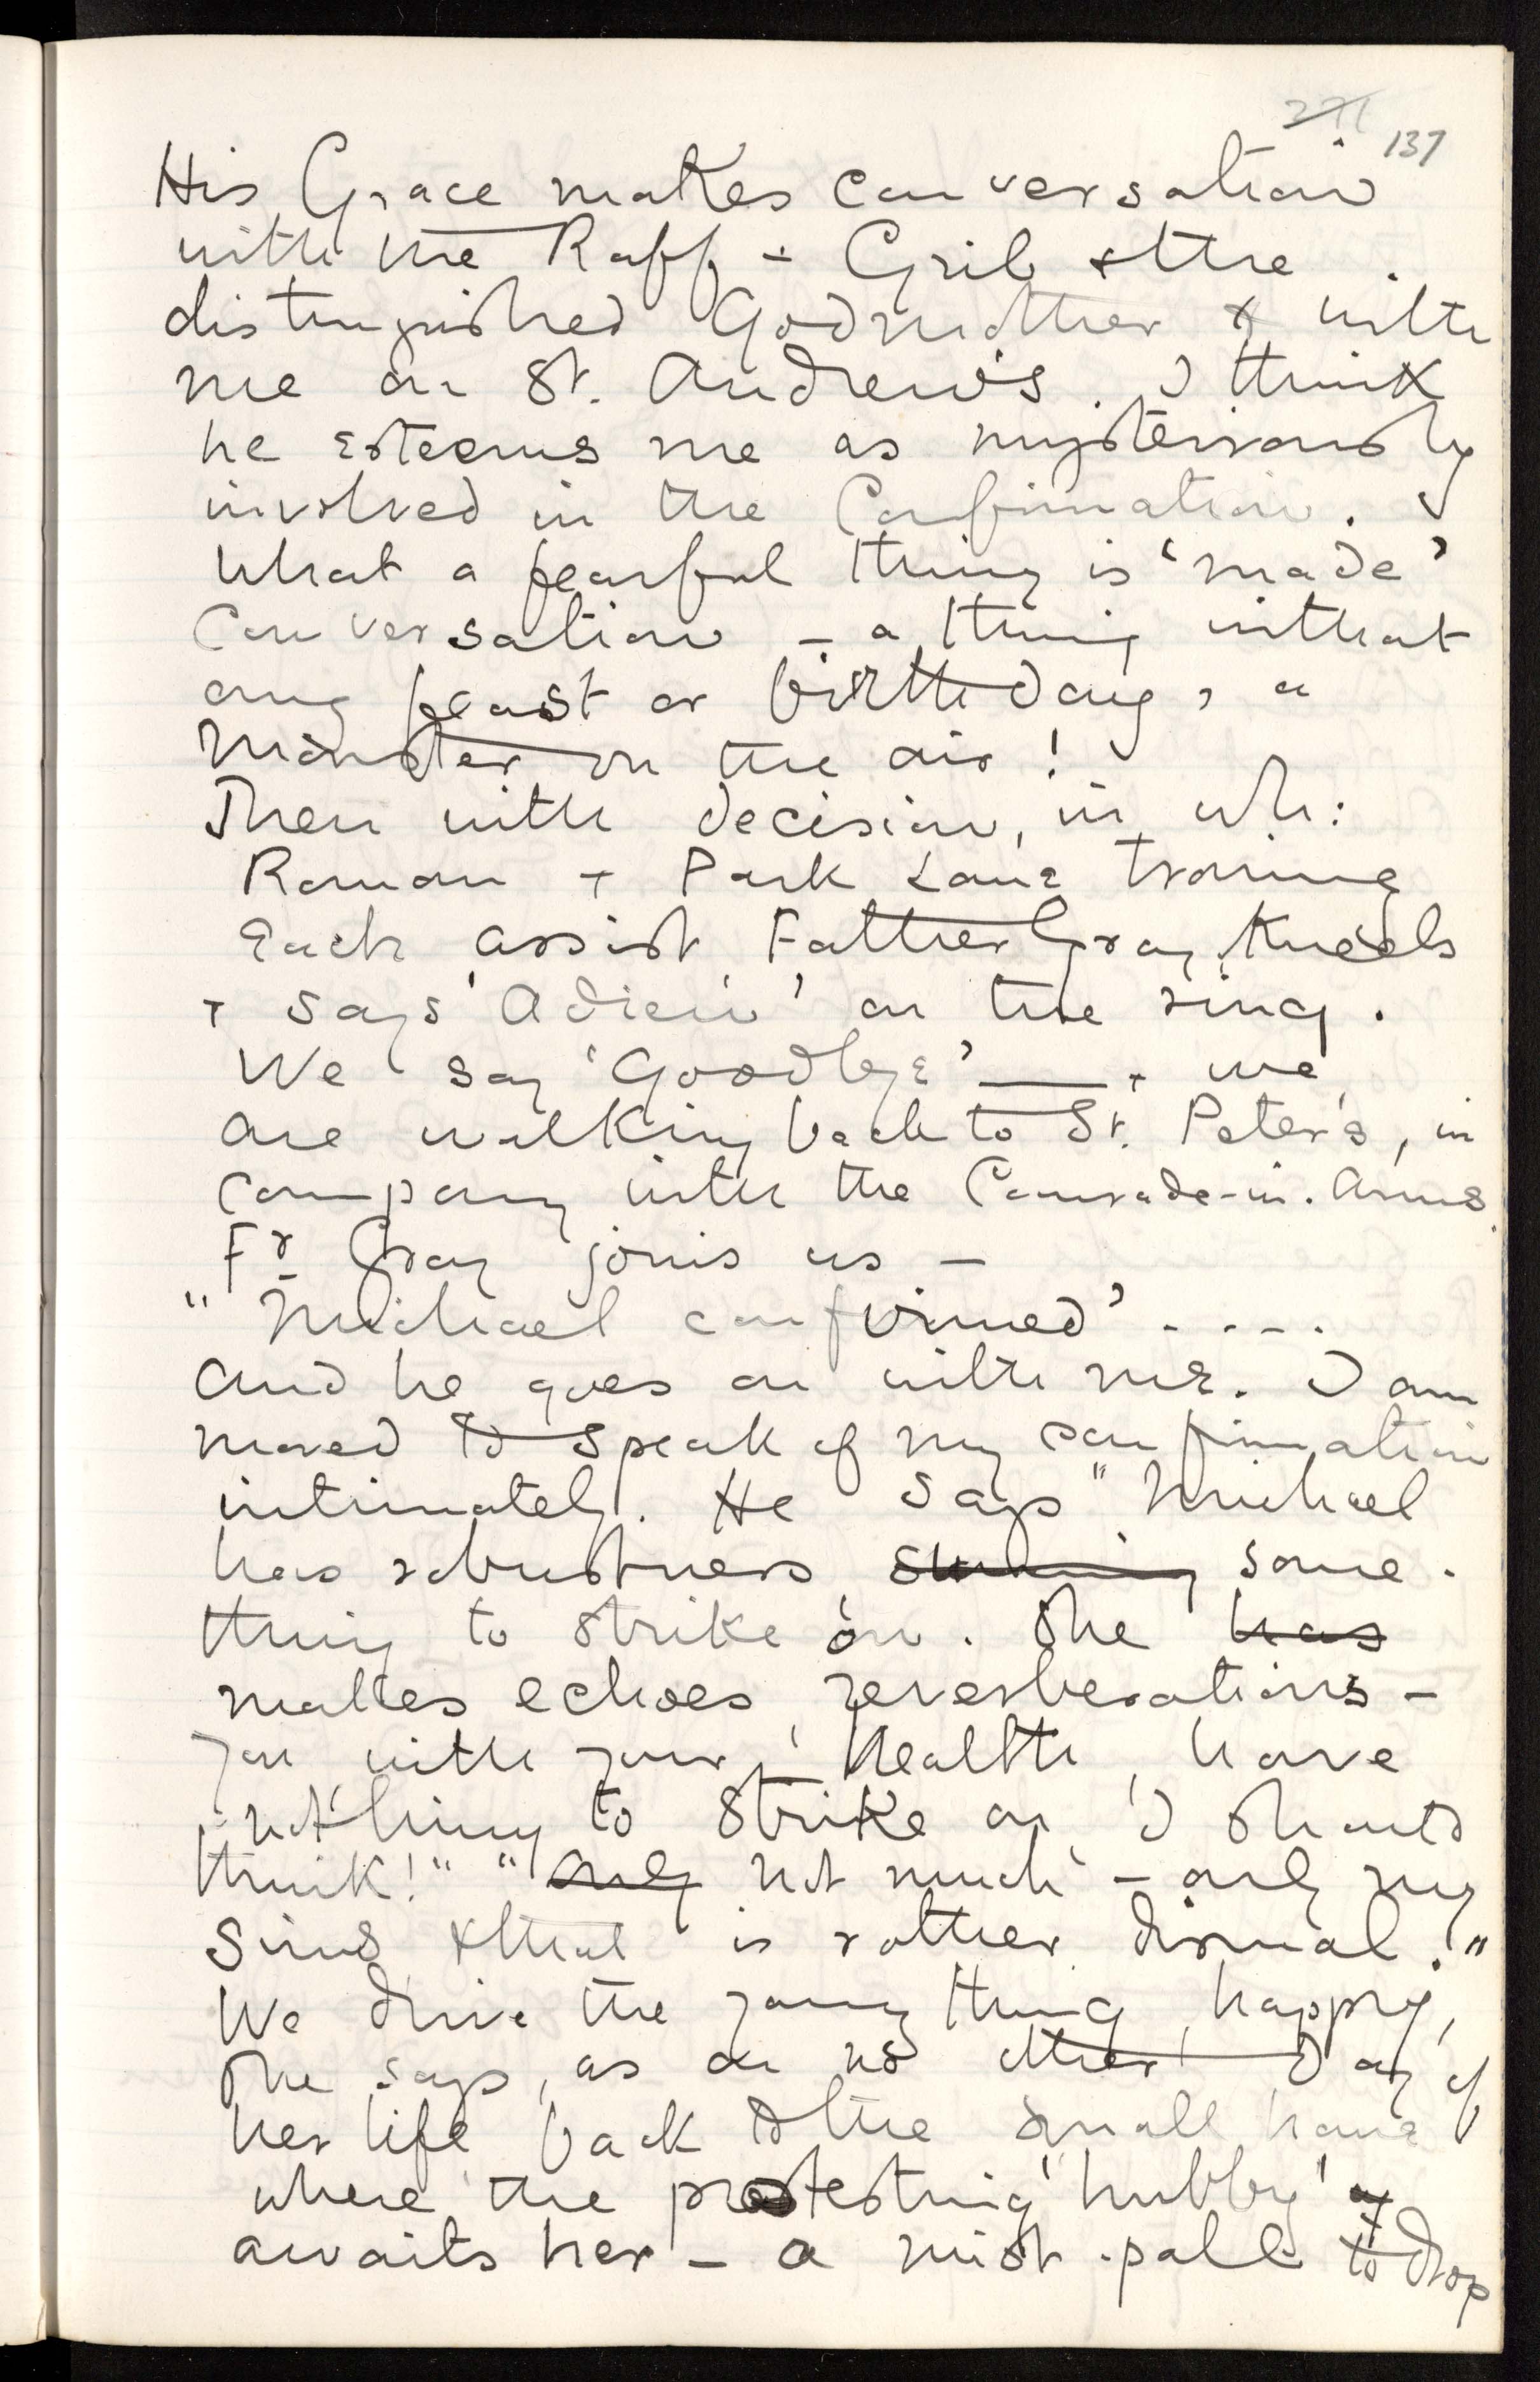 271 137
His Grace makes conversation
with the Raff + Gril & the
distinguished Godmother & with
me on St. Andrew's. I think
he esteems me as mysteriously
involved in the Confirmation.
What a fearful thing is 'made'
Conversation – a thing without
any feast or birthday, a
monster on the air!
Then with decision, in wh:
Roman + Park Lane training
Each assist, Father Gray kneels
+ says 'Adieu' on the ring.
We say 'Goodbye' — + we
are walking back to St. Peter's, in
company with the Comrade-in-Arms.
Fr Gray joins us –
"Michael confirmed' . . . .
And he goes on with me. I am
moved to speak of my confirmation
intimately. He says "Michael
has robustness, some-
thing to strike on. She has
makes echoes, reverberations –
you with your health, have
nothing to strike on, I should
think!" "Only not much – only my
sins & that is rather dismal."
We drive the young thing, happy,
she says, as on no other day of
her life back to the small house
where the protesting 'hubby'
awaits her – a mist-pall to drop